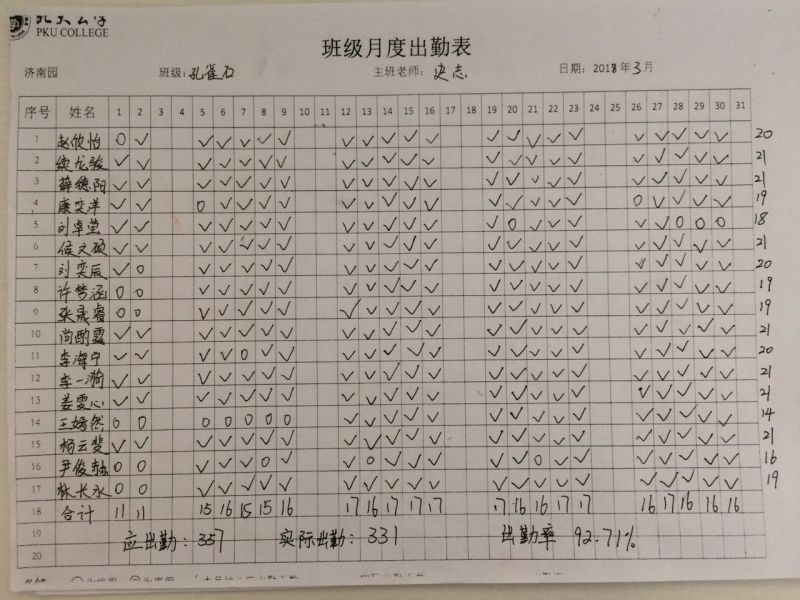 PKU COLLEGE
班级月度出勤表
济南园 班级: 孔雀石 主班老师: 史志 日期: 2018年3月
序号 姓名 1 2 3 4 5 6 7 8 9 10 11 12 13 14 15 16 17 18 19 20 21 22 23 24 25 26 27 28 29 30 31
1 赵欣怡 O ✓ ✓ ✓ ✓ ✓ ✓ ✓ ✓ ✓ ✓ ✓ ✓ ✓ ✓ ✓ ✓ ✓ ✓ ✓ ✓ ✓ 20
2 龙骏 ✓ ✓ ✓ ✓ ✓ ✓ ✓ ✓ ✓ ✓ ✓ ✓ ✓ ✓ ✓ ✓ ✓ ✓ ✓ ✓ ✓ ✓ 21
3 薛德阳 ✓ ✓ ✓ ✓ ✓ ✓ ✓ ✓ ✓ ✓ ✓ ✓ ✓ ✓ ✓ ✓ ✓ ✓ ✓ ✓ ✓ ✓ 21
4 康奕洋 ✓ ✓ O ✓ ✓ ✓ ✓ ✓ ✓ ✓ ✓ ✓ ✓ ✓ ✓ ✓ ✓ O ✓ ✓ ✓ ✓ 19
5 刘卓莹 ✓ ✓ ✓ ✓ ✓ ✓ ✓ ✓ ✓ ✓ ✓ ✓ ✓ O ✓ ✓ ✓ ✓ ✓ O O O 18
6 侯文硕 ✓ ✓ ✓ ✓ ✓ ✓ ✓ ✓ ✓ ✓ ✓ ✓ ✓ ✓ ✓ ✓ ✓ ✓ ✓ ✓ ✓ ✓ 21
7 刘奕辰 ✓ O ✓ ✓ ✓ ✓ ✓ ✓ ✓ ✓ ✓ ✓ ✓ ✓ ✓ ✓ ✓ ✓ ✓ ✓ ✓ ✓ 20
8 许梦涵 O O ✓ ✓ ✓ ✓ ✓ ✓ ✓ ✓ ✓ ✓ ✓ ✓ ✓ ✓ ✓ ✓ ✓ ✓ ✓ ✓ 19
9 张晟睿 O O ✓ ✓ ✓ ✓ ✓ ✓ ✓ ✓ ✓ ✓ ✓ ✓ ✓ ✓ ✓ ✓ ✓ ✓ ✓ ✓ 19
10 尚露 ✓ ✓ ✓ ✓ ✓ ✓ ✓ ✓ ✓ ✓ ✓ ✓ ✓ ✓ ✓ ✓ ✓ ✓ ✓ ✓ ✓ ✓ 21
11 李海宁 ✓ ✓ ✓ ✓ O ✓ ✓ ✓ ✓ ✓ ✓ ✓ ✓ ✓ ✓ ✓ ✓ ✓ ✓ ✓ ✓ ✓ 20
12 李一漪 ✓ ✓ ✓ ✓ ✓ ✓ ✓ ✓ ✓ ✓ ✓ ✓ ✓ ✓ ✓ ✓ ✓ ✓ ✓ ✓ ✓ ✓ 21
13 姜雯心 ✓ ✓ ✓ ✓ ✓ ✓ ✓ ✓ ✓ ✓ ✓ ✓ ✓ ✓ ✓ ✓ ✓ ✓ ✓ ✓ ✓ ✓ 21
14 王嫣然 O O O O O O O ✓ ✓ ✓ ✓ ✓ ✓ ✓ ✓ ✓ ✓ ✓ ✓ ✓ ✓ ✓ 14
15 杨云斐 ✓ ✓ ✓ ✓ ✓ ✓ ✓ ✓ ✓ ✓ ✓ ✓ ✓ ✓ ✓ ✓ ✓ ✓ ✓ ✓ ✓ ✓ 21
16 尹俊赫 O O ✓ ✓ ✓ O ✓ ✓ O ✓ ✓ ✓ ✓ ✓ O ✓ ✓ ✓ ✓ ✓ ✓ ✓ 16
17 林长永 O O ✓ ✓ ✓ ✓ ✓ ✓ ✓ ✓ ✓ ✓ ✓ ✓ ✓ ✓ ✓ ✓ ✓ ✓ ✓ ✓ 19
18 合计 11 11 15 16 15 15 16 17 16 17 17 17 17 16 16 17 17 16 17 16 16 16
19 应出勤: 357 实际出勤: 331 出勤率 92.71%
20